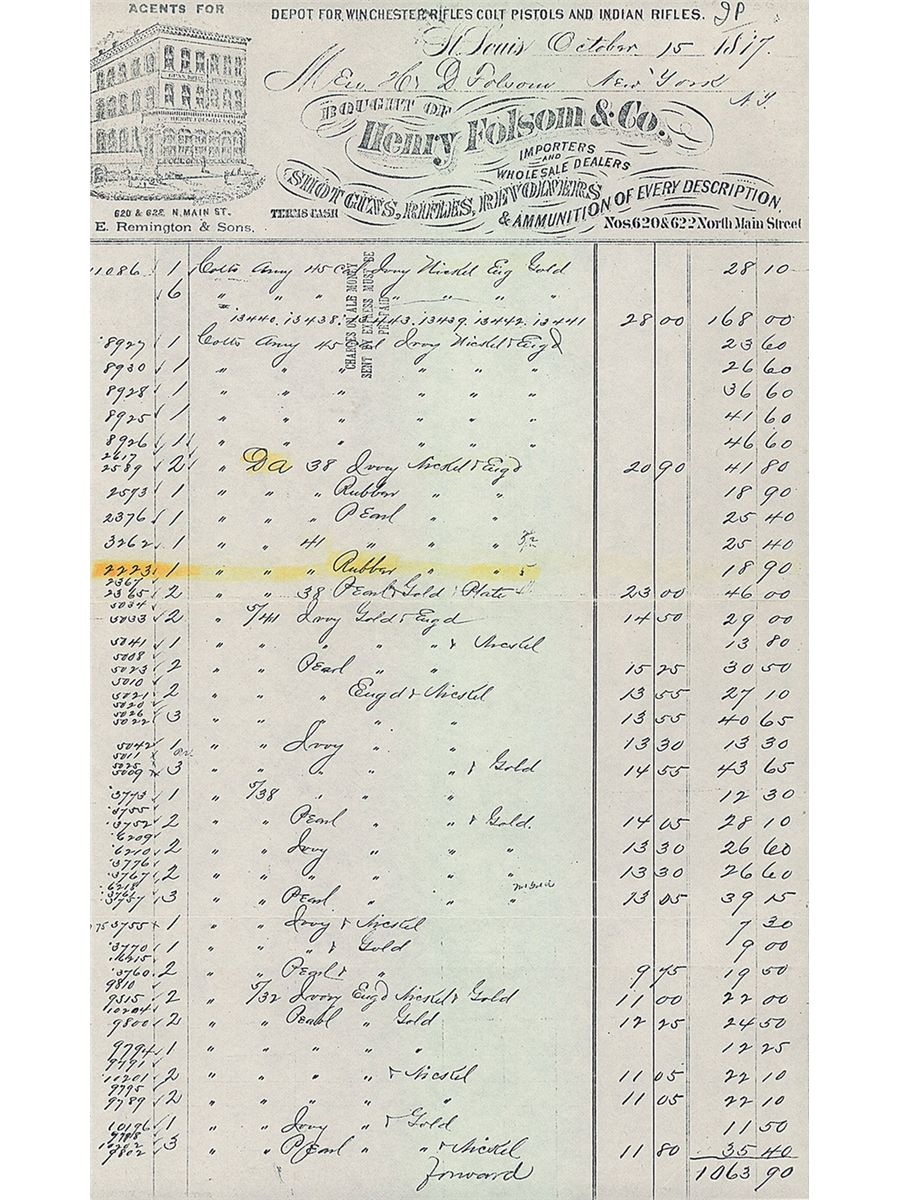 AGENTS FOR
DEPOT FOR WINCHESTER RIFLES COLT PISTOLS AND INDIAN RIFLES.
St. Louis October 15 1817.
M H. & D. Folsom New York
N.Y.
BOUGHT OF
Henry Folsom & Co.
IMPORTERS
AND
WHOLESALE DEALERS
SHOT GUNS, RIFLES, REVOLVERS
& AMMUNITION OF EVERY DESCRIPTION,
620 & 622 N. MAIN ST.
TERMS CASH
Nos 620 & 622 North Main Street
E. Remington & Sons.
CHARGES ON ALE MONEY
SENT BY EXPRESS MUST BE
PREPAID
11086 1 Colts Army 45 Cal Ivory Nickel Eng Gold 28 10
6 " " " " " " "
13440. 13438. 13443. 13439. 13442. 13441 28 00 168 00
8927 1 Colts Army 45 Cal Ivory Nickel & Engd 23 60
8930 1 " " " " " " 26 60
8928 1 " " " " " " 36 60
8925 1 " " " " " " 41 60
8926 1 " " " " " " 46 60
2617
2589 2 " DA 38 Ivory Nickel & Engd 20 90 41 80
2573 1 " " " Rubber " " 18 90
2376 1 " " " Pearl " " 25 40
3262 1 " " 41 " " " 25 40
2223 1 " " " Rubber " " 18 90
2367
2365 2 " " 38 Pearl & Gold Plate 23 00 46 00
5034
5033 2 " 5/41 Ivory Gold & Engd 14 50 29 00
5041 1 " " " " " & Nickel 13 80
5008
5023 2 " " Pearl " " 15 25 30 50
5010
5021 2 " " " Engd & Nickel 13 55 27 10
5020
5026
5022 3 " " " " " 13 55 40 65
5042 1 " " Ivory " " 13 30 13 30
5011
5025
5009 3 " " " " " & Gold 14 55 43 65
3773 1 " 5/38 " " " 12 30
3755
3752 2 " " Pearl " " & Gold. 14 05 28 10
6209
6210 2 " " Ivory " " " 13 30 26 60
3776
3767 2 " " " " " " 13 30 26 60
6218
3761
3757 3 " " Pearl " " " 13 05 39 15
3755 1 " " Ivory & Nickel 7 30
3770 1 " " " & Gold 9 00
6215
3760 2 " " Pearl & " 9 75 19 50
9810
9515 2 " 5/32 Ivory Engd Nickel & Gold 11 00 22 00
10204
9800 2 " " Pearl " Gold 12 25 24 50
9794 1 " " " " " 12 25
9791
10201 2 " " " " & Nickel 11 05 22 10
9795
9789 2 " " " " " 11 05 22 10
10196 1 " " Ivory " & Gold 11 50
9788
10202
9802 3 " " Pearl " " & Nickel 11 80 35 40
Forward 1063 90